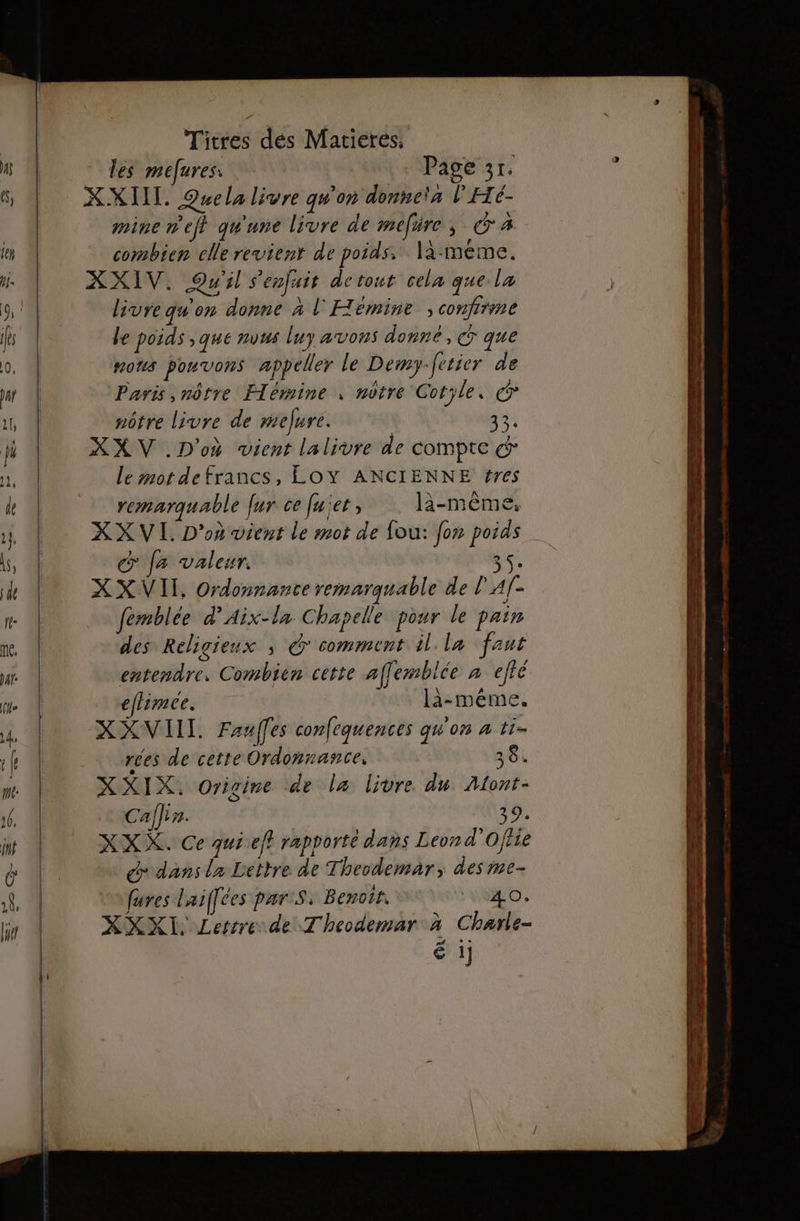 Titres des Matieres.
les mesures. Page 31.
XXIII. Que la livre qu'on donne à l'Hé-
mine n'est qu'une livre de mesure, & à
combien elle revient de poids. là-même.
XXIV. Qu'il s'ensuit de tout cela que la
livre qu'on donne à l'Hémine, confirme
le poids, que nous luy avons donné, & que
nous pouvons appeller le Demy-setier de
Paris, nôtre Hémine, nôtre Cotyle, &
nôtre livre de mesure. 33.
XXV. D'où vient la livre de compte &
le mot de francs, LOY ANCIENNE tres
remarquable sur ce sujet, là-même.
XXVI. D'où vient le mot de sou: son poids
& sa valeur. 35.
XXVII. Ordonnance remarquable de l'As-
semblée d'Aix-la Chapelle pour le pain
des Religieux, & comment il la faut
entendre. Combien cette assemblée a esté
estimée. là-même.
XXVIII. Fausses consequences qu'on a ti-
rées de cette Ordonnance. 38.
XXIX. Origine de la livre du Mont-
Cassin. 39.
XXX. Ce qui est rapporté dans Leon d'Ostie
& dans la Lettre de Theodemar, des me-
sures laissées par S. Benoît. 40.
XXXI. Lettre de Theodemar à Charle-
é ij